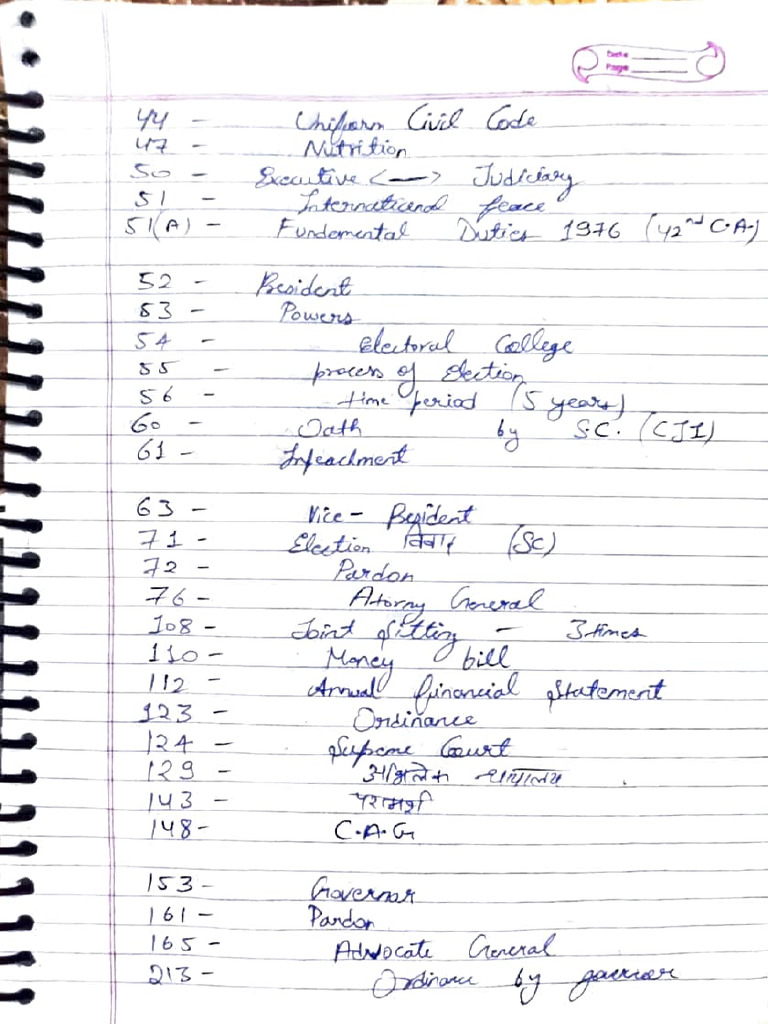 Date
Page
44 - Uniform Civil Code
47 - Nutrition
50 - Executive <—> Judiciary
51 - International peace
51(A) - Fundamental Duties 1976 (42nd C.A.)
52 - President
53 - Powers
54 - Electoral College
55 - process of Election
56 - time period (5 years)
60 - Oath by SC. (CJI)
61 - Impeachment
63 - Vice - President
71 - Election विवाद (SC)
72 - Pardon
76 - Atorny General
108 - Joint Sitting - 3 times
110 - Money bill
112 - Annual financial Statement
123 - Ordinance
124 - Supreme Court
129 - अभिलेख न्यायालय
143 - परामर्श
148 - C.A.G
153 - Governor
161 - Pardon
165 - Advocate General
213 - Ordinance by